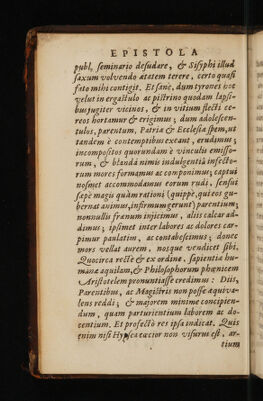 EPISTOLA
publ, seminario desudare, & Sisyphi illud
saxum volvendo ætatem terere, certo quasi
fato mihi contigit. Et sanè, dum tyrones
velut in ergastulo ac pistrino quodam lapsi-
bus jugiter vicinos, & in vitium flecti ce-
reos hortamur & erigimus; dum adolescen-
tulos, parentum, Patriæ & Ecclesiæ spem, ut
tandem è contemptibus exeant, erudimus;
incompositos quorundam è vinculis emisso-
rum, & blandâ nimis indulgentiâ infecto-
rum mores formamus ac componimus; captui
nosmet accommodamus eorum rudi, sensui
sæpe magis quàm rationi (quippe, queos gu-
bernat animus, infirmum gerunt) parentium;
nonnullis frænum injicimus, aliis calcar ad-
dimus; ipsimet inter labores ac dolores car-
pimur paulatim, ac contabescimus; donec
mors vellat aurem, nosque vendicet sibi.
Quocirca rectè & ex ordine, sapientia hu-
manæ aquilam, & Philosophorum phœnicem
Aristotelem pronuntiasse credimus: Diis,
Parentibus, ac Magistris non posse æquiva-
lens reddi; & majorem minime concipien-
dum, quam parturientium laborem ac do-
centium. Et profectò res ipsa indicat. Quis
enim nisi Hypsea cæcior non visurus est, ar-
tium